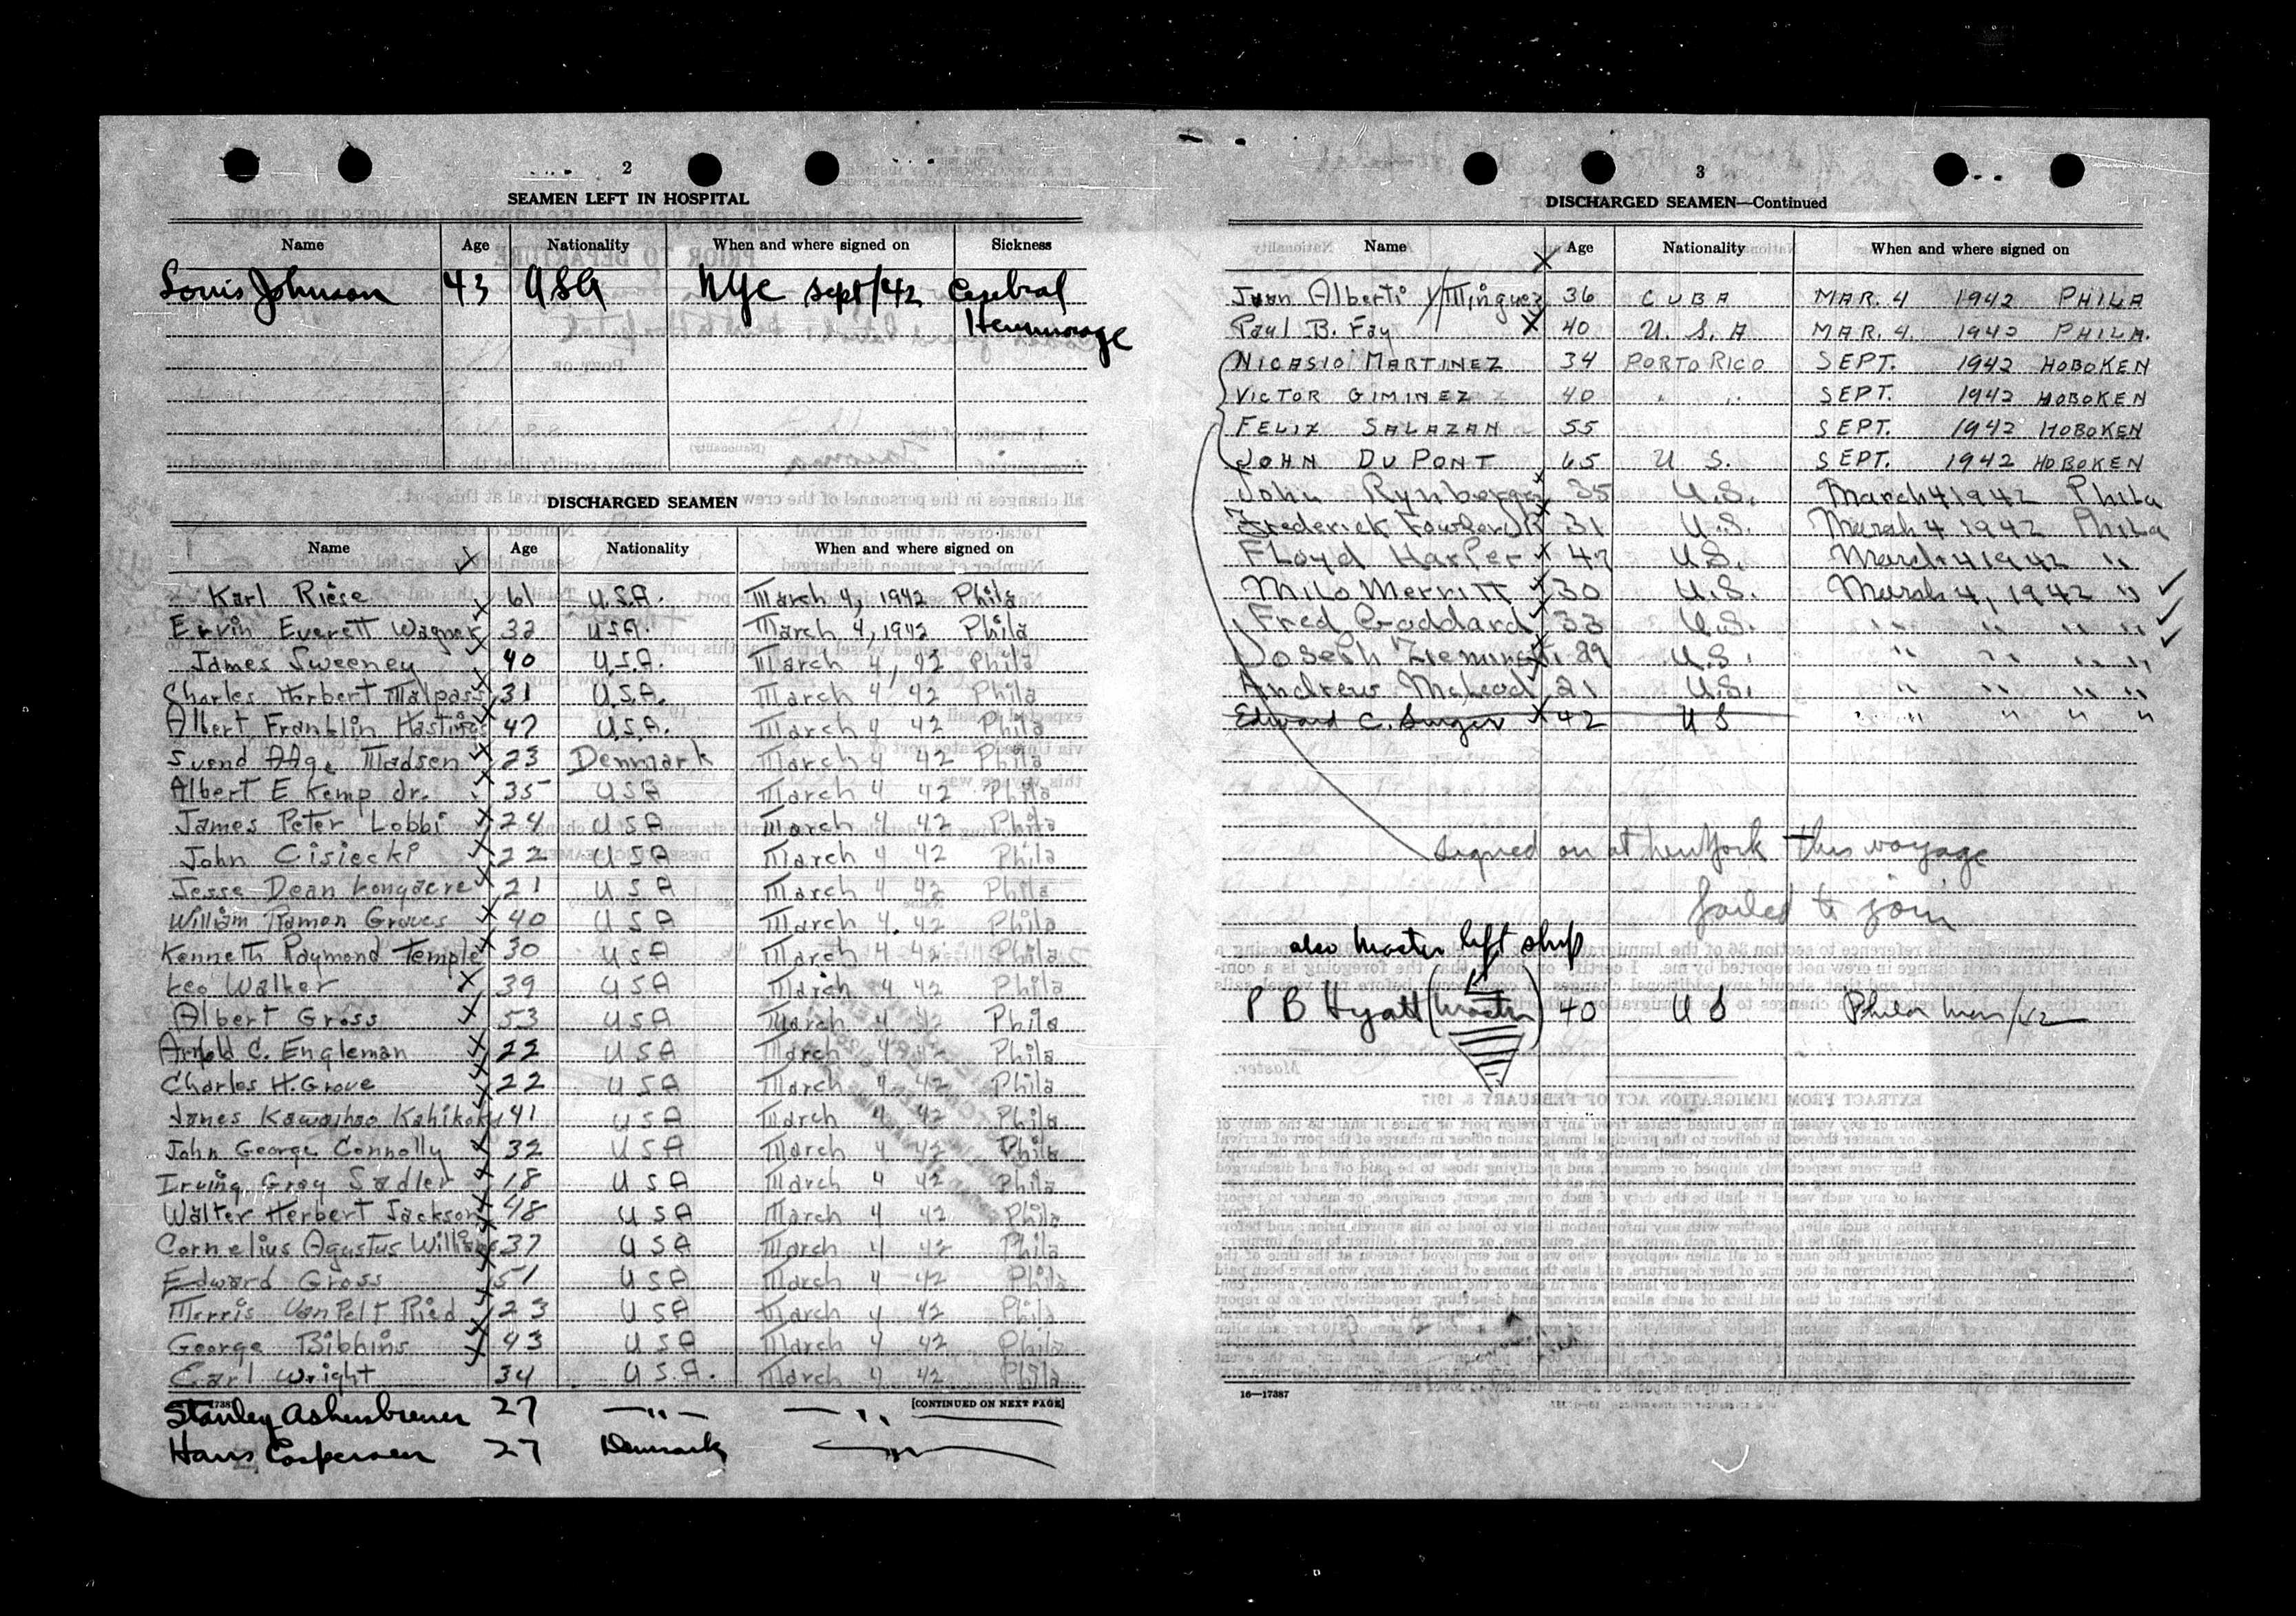 2
SEAMEN LEFT IN HOSPITAL
Name Age Nationality When and where signed on Sickness
Louis Johnson 43 USA NYC Sept/42 Cerebral
Hemmorage
DISCHARGED SEAMEN
Name Age Nationality When and where signed on
Karl Riese 61 U.S.A. March 4, 1942 Phila
Ervin Everett Wagner 32 U.S.A. March 4, 1942 Phila
James Sweeney 40 U.S.A. March 4, 42 Phila
Charles Herbert Malpass 31 U.S.A. March 4 42 Phila
Albert Franklin Hastings 47 U.S.A. March 4 42 Phila
Svend Aage Madsen 23 Denmark March 4 42 Phila
Albert E Kemp Jr. 35 USA March 4 42 Phila
James Peter Lobbi 24 USA March 4 42 Phila
John Cisiecki 22 USA March 4 42 Phila
Jesse Dean Longacre 21 USA March 4 42 Phila
William Ramon Graves 40 USA March 4. 42 Phila
Kenneth Raymond Temple 30 USA March 4 42 Phila
Leo Walker 39 USA March 4 42 Phila
Albert Gross 53 USA March 4 42 Phila
Arnold C. Engleman 22 USA March 4 42 Phila
Charles H. Grove 22 USA March 4 42 Phila
James Kawaihao Kahikoku 41 USA March 4 42 Phila
John George Connolly 32 USA March 4 42 Phila
Irving Gray Sadler 18 USA March 4 42 Phila
Walter Herbert Jackson 48 USA March 4 42 Phila
Cornelius Agustus Williams 37 USA March 4 42 Phila
Edward Gross 51 USA March 4 42 Phila
Morris VanPelt Ried 23 USA March 4 42 Phila
George Bibbins 43 USA March 4 42 Phila
Earl Wright 34 U.S.A. March 4 42 Phila
[CONTINUED ON NEXT PAGE]
Stanley Ashenbrener 27 — " — — " —
Hans Espersen 27 Denmark — " —
3
DISCHARGED SEAMEN—Continued
Name Age Nationality When and where signed on
Juan Alberti y Minguez 36 CUBA MAR. 4 1942 PHILA
Paul B. Fay 40 U.S.A MAR. 4. 1942 PHILA.
NICASIO MARTINEZ 34 PORTO RICO SEPT. 1942 HOBOKEN
VICTOR GIMINEZ 40 " " SEPT. 1942 HOBOKEN
FELIX SALAZAN 55 SEPT. 1942 HOBOKEN
JOHN DUPONT 65 U S. SEPT. 1942 HOBOKEN
John 35 U.S. March 4 1942 Phila
Frederick Fowler JR 31 U.S. March 4 1942 Phila
Floyd Harper 47 U.S. March 4 1942 "
Milo Merritt 30 U.S. March 4, 1942 "
Fred Goddard 33 U.S. " " " "
Joseph 29 U.S. " " " "
Andrew McLeod 21 U.S. " " " "
Edward C. Singer 42 US " " " "
signed on at New York this voyage
failed to join
also Master left ship
P B Hyatt (Master) 40 US Phila Mar/42
16—17387